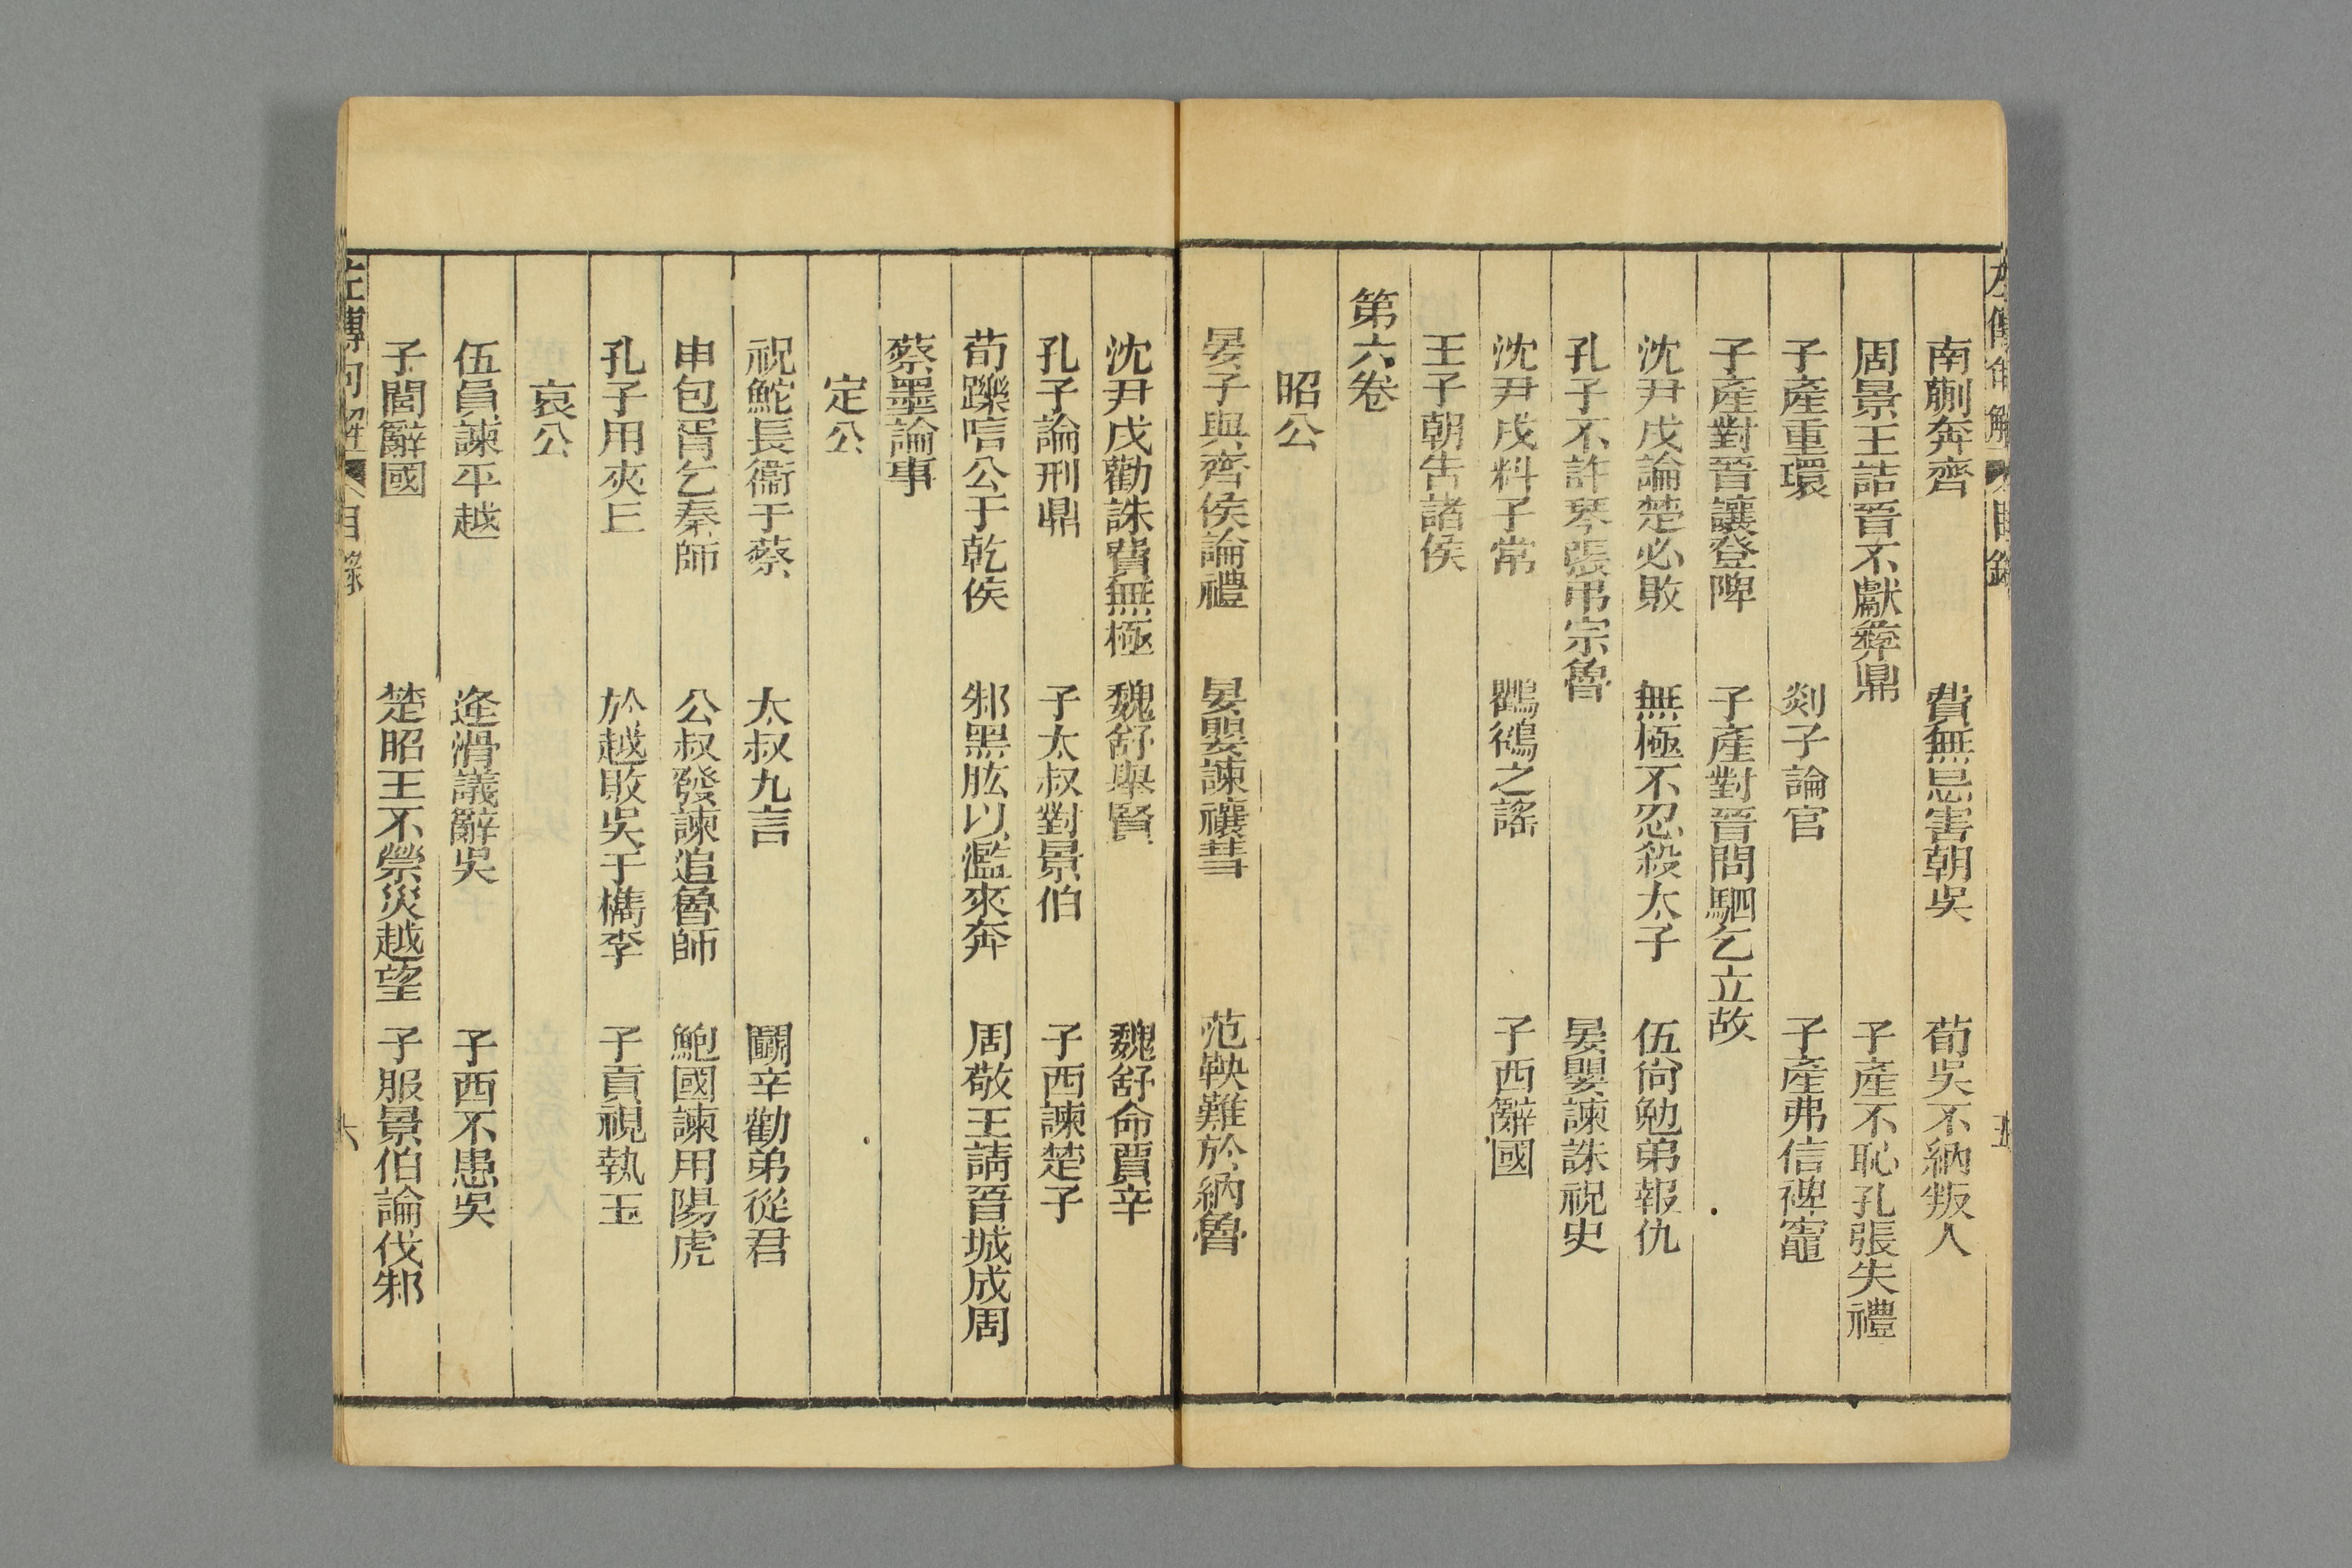 南蒯奔齊　費無忌害朝吳　荀吳不納叛人
周景王詰晉不獻彝鼎　子產不恥孔張失禮
子產重環　剡子論官　子產弗信裨竈
子產對晉讓登陴　子產對晉問駟乞立故
沈尹戌論楚必敗　無極不忍殺太子　伍尙勉弟報仇
孔子不許琴張弔宗魯　晏嬰諫誅祝史
沈尹戌料子常　鸜鵒之謠　子西辭國
王子朝告諸侯
第六卷
昭公
晏子與齊侯論禮　晏嬰諫禳彗　范鞅難於納魯
沈尹戌勸誅費無極　魏舒舉賢　魏舒命賈辛
孔子論刑鼎　子太叔對景伯　子西諫楚子
荀躒唁公于乾侯　邾黑肱以濫來奔　周敬王請晉城成周
蔡墨論事
定公
祝鮀長衞于蔡　太叔九言　鬬辛勸弟從君
申包胥乞秦師　公叔發諫追魯師　鮑國諫用陽虎
孔子用夾丘　於越敗吳于檇李　子貢視執玉
哀公
伍員諫平越　逄滑議辭吳　子西不患吳
子閭辭國　楚昭王不禜災越望　子服景伯論伐邾
左傳句解　目錄　六